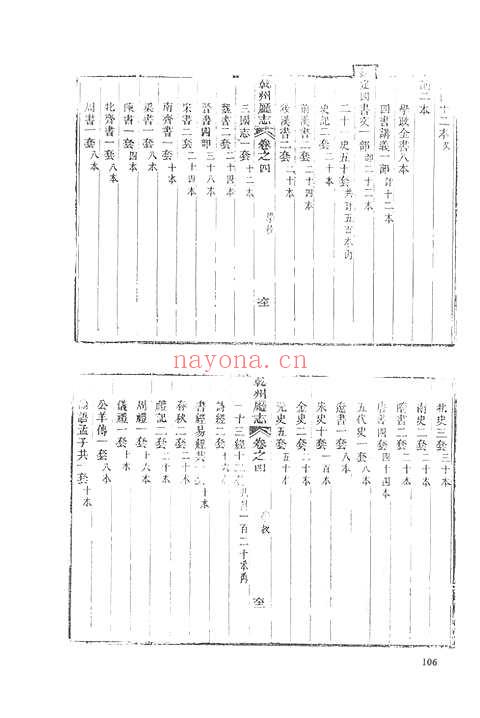 十二本
二本
學政全書八本
四書講義一部計十二本
部二十二本
二十一史五十套共計五百本內
史記二套二十本
前漢書二套二十本
後漢書二套二十本
學校
乾州廳志 卷之四
三國志一套十二本
魏書二套二十四本
晉書四部三十八本
宋書二套二十四本
南齊書一套八本
梁書一套八本
陳書一套四本
北齊書一套八本
周書一套八本
nayona.cn
北史三套三十本
南史二套二十本
隋書二套二十本
唐書四套四十四本
五代史一套八本
遼書一套八本
宋史十套一百本
金史二套二十本
元史五套五十本
校
乾州廳志 卷之四
一百二十本內
詩經二套十六本
書經易經共一套十本
春秋二套二十本
禮記二套二十本
周禮一套十六本
儀禮一套十本
公羊傳一套八本
論語孟子共一套十本
106